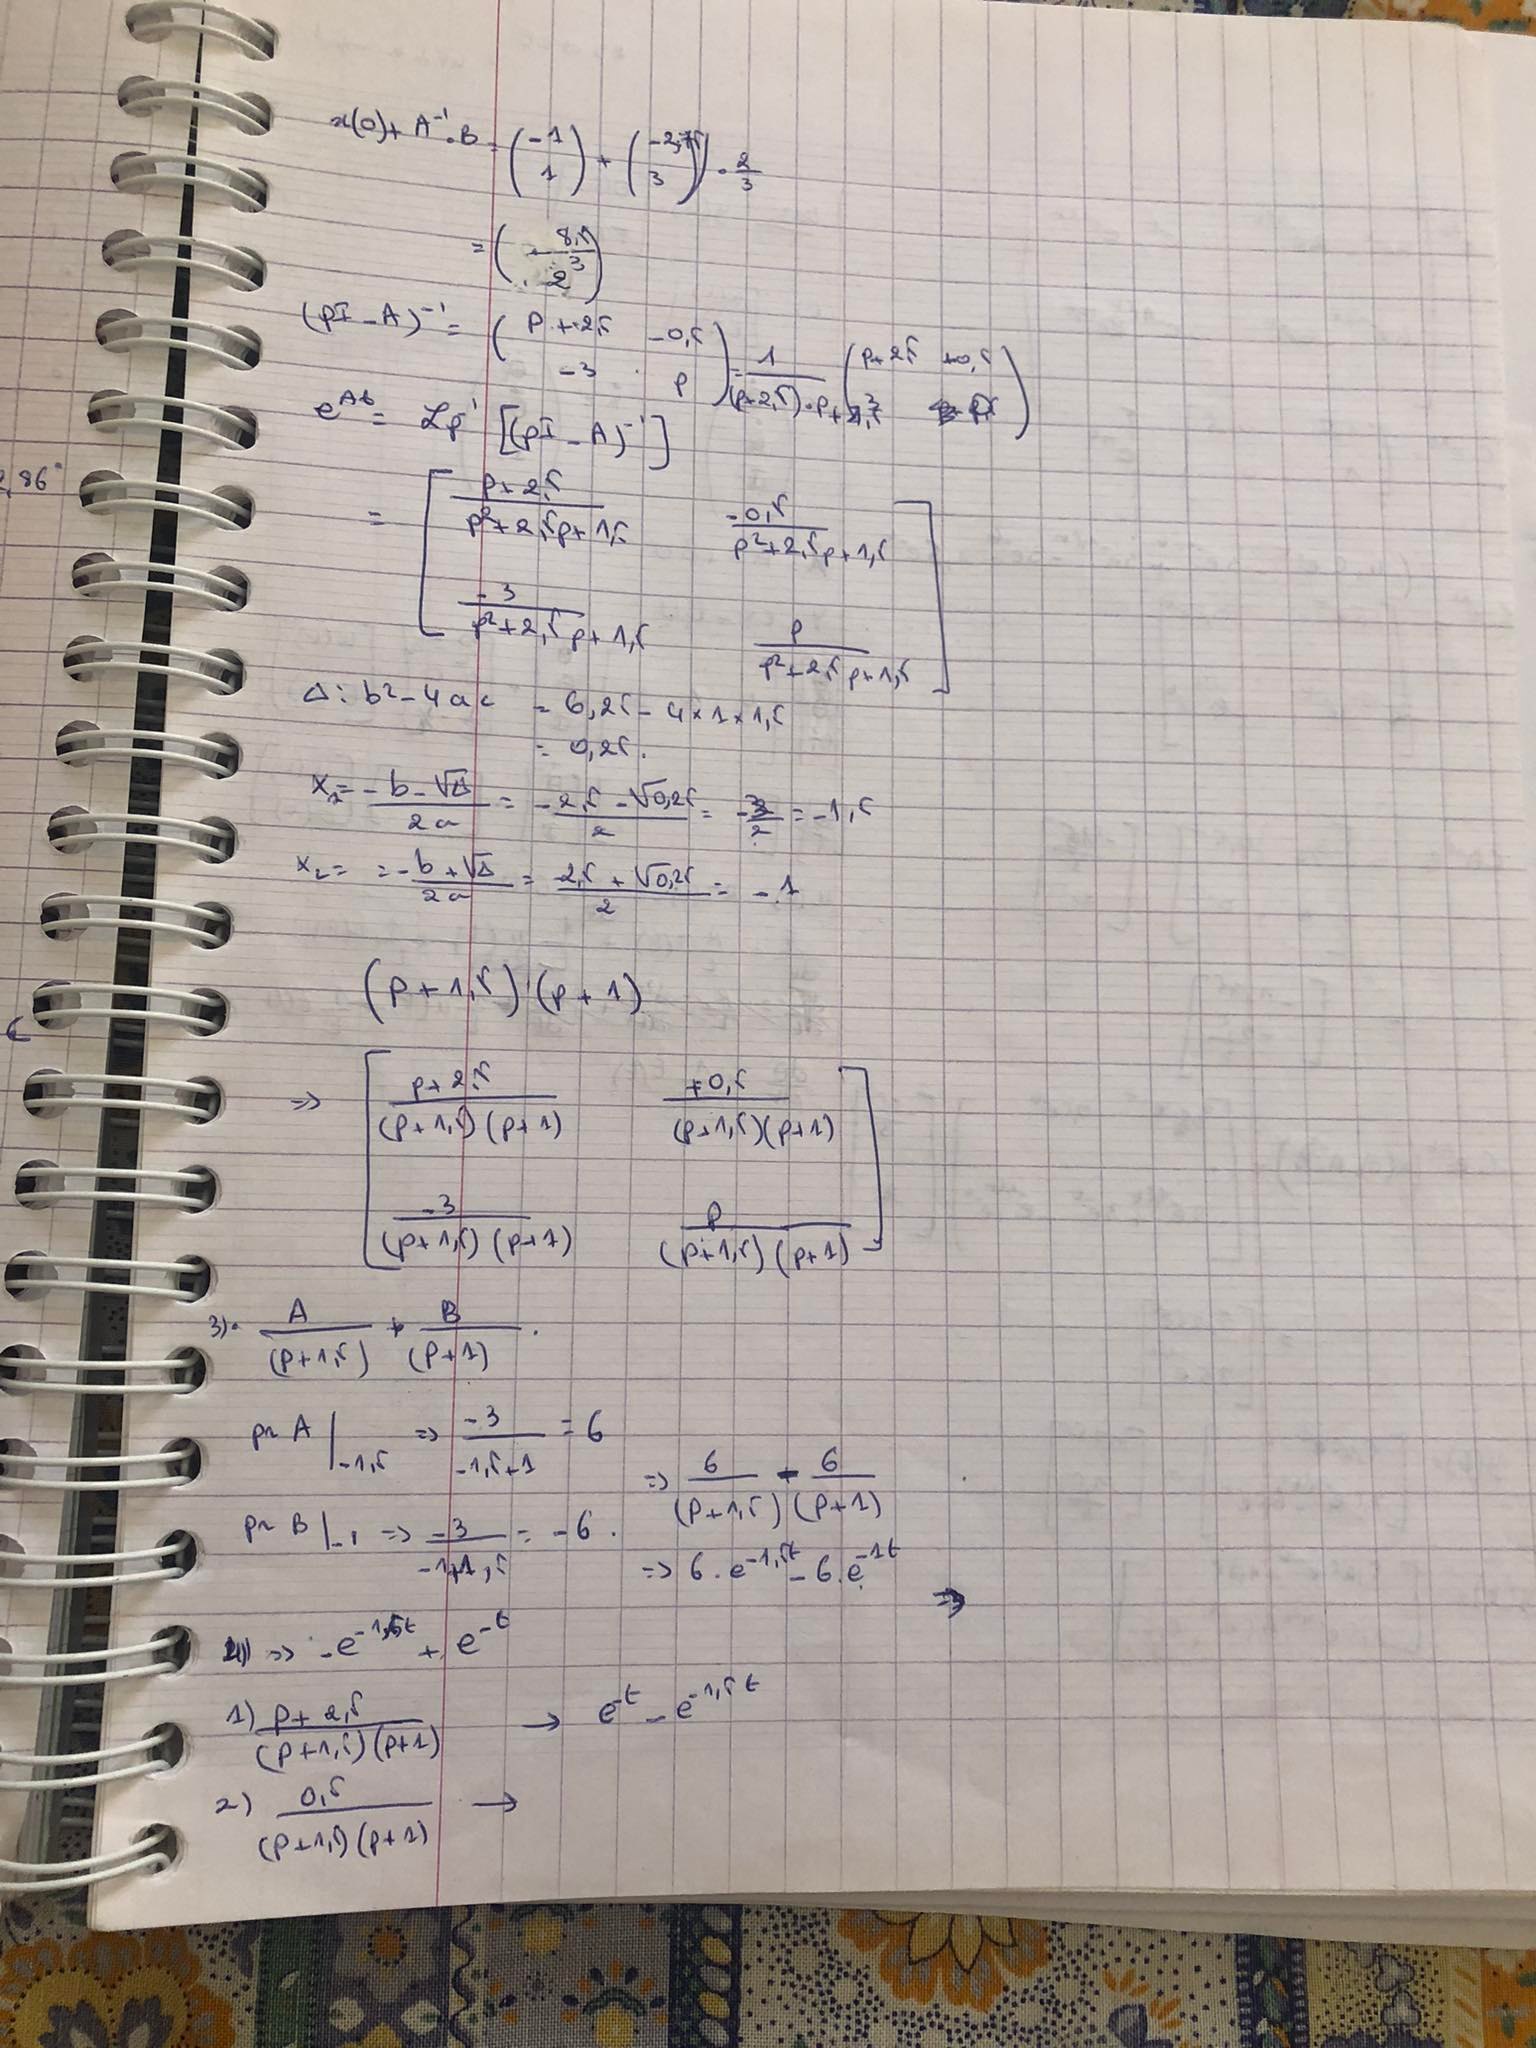 x(0) + A⁻¹.B = (-1 1) + (-2,75 3) . 2/3
= (-8,5/3 2)
(pI - A)⁻¹ = (p + 2,5 -0,5 -3 p) = 1/((p+2,5).p+1,5) (p+2,5 +0,5
e^At = Lp⁻¹ [(pI - A)⁻¹]
2,86°
= [(p + 2,5)/(p² + 2,5p + 1,5) -0,5/(p² + 2,5p + 1,5)
-3/(p² + 2,5p + 1,5) p/(p² + 2,5p + 1,5)]
Δ: b² - 4ac = 6,25 - 4 × 1 × 1,5
= 0,25.
x₁ = (-b - √Δ)/2a = (-2,5 - √0,25)/2 = -3/2 = -1,5
x₂ = = (-b + √Δ)/2a = (-2,5 + √0,25)/2 = -1
(p + 1,5) (p + 1)
=> [(p + 2,5)/((p+1,5) (p+1)) +0,5/((p+1,5)(p+1))
-3/((p+1,5) (p+1)) p/((p+1,5) (p+1))]
3). A/(p+1,5) + B/(p+1) .
pr A |-1,5 => -3/(-1,5+1) = 6
=> 6/(p+1,5) - 6/(p+1)
pr B |-1 => -3/(-1+1,5) = -6.
=> 6.e^-1,5t - 6.e^-1t =>
4) => -e^-1,5t + e^-t
1) (p + 2,5)/((p+1,5) (p+1)) → e^-t - e^-1,5t
2) 0,5/((p+1,5) (p+1)) →